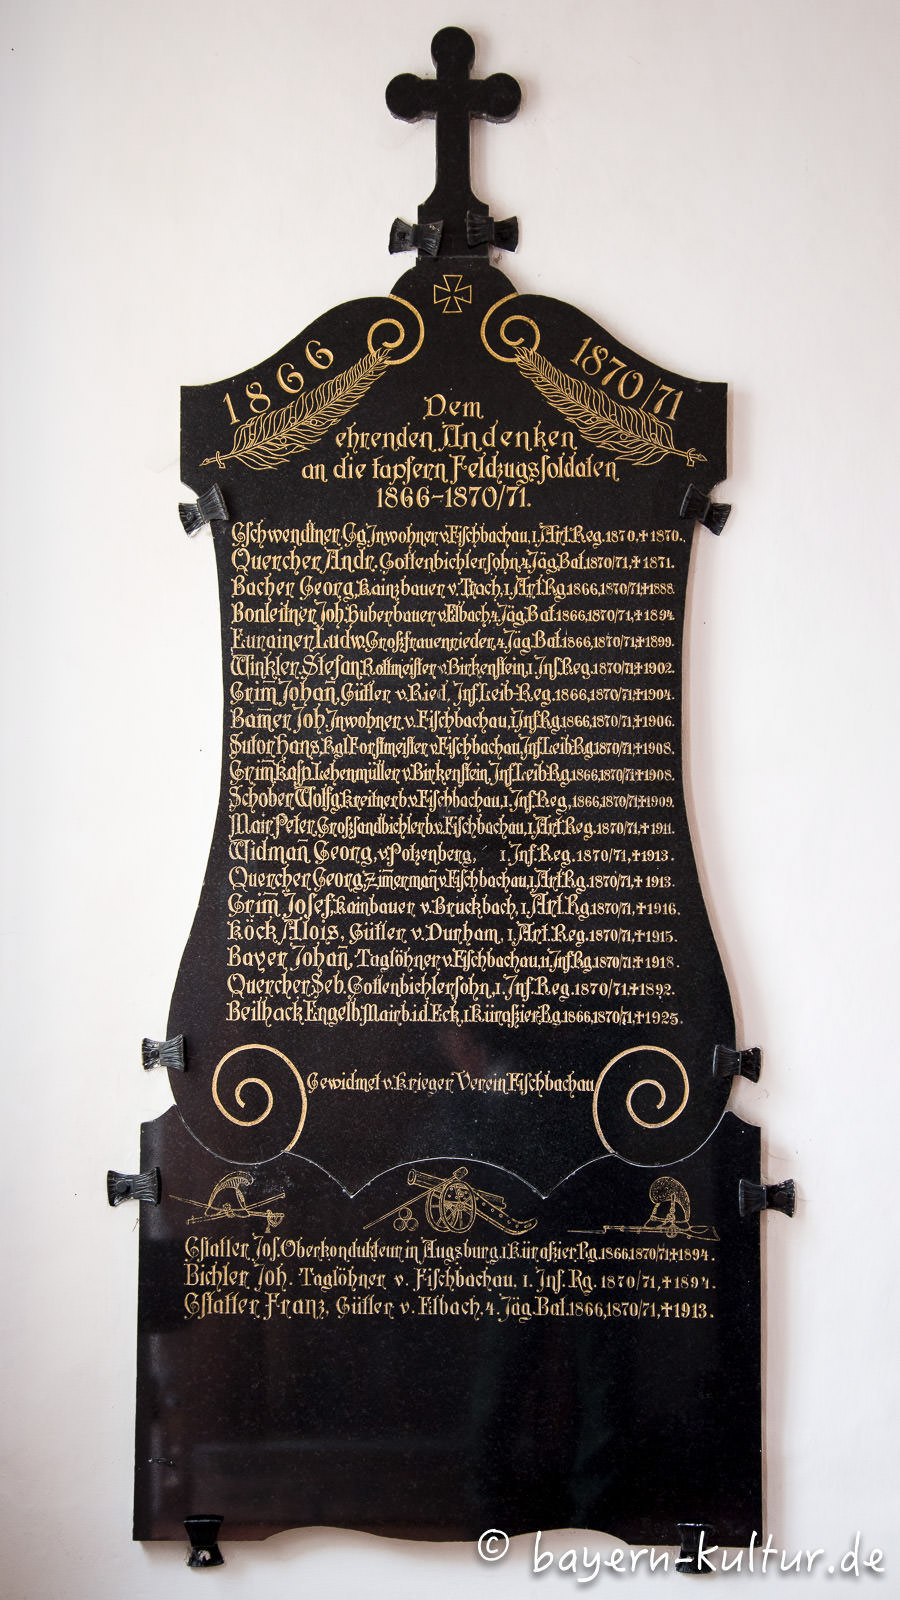 1866
1870/71
Dem
ehrenden Andenken
an die tapfern Feldzugssoldaten
1866-1870/71.
Gschwendtner Gg. Inwohner v. Fischbachau, 1. Art. Reg. 1870, † 1870.
Quercher Andr. Gottenbichlersohn, 4. Jäg. Bat. 1870/71, † 1871.
Bacher Georg, Kainzbauer v. Trach, 1. Art. Rg. 1866, 1870/71 † 1888
Bonleitner Joh. Huberbauer v. Elbach, 4. Jäg. Bat. 1866, 1870/71, † 1894
Eurainer Ludw. Großfrauenrieder, 4. Jäg. Bat. 1866, 1870/71, † 1899.
Winkler Stefan Rottmeister v. Birkenstein, 1. Inf. Reg. 1870/71 † 1902.
Grim̄ Johan̄, Gütler v. Ried, Inf. Leib-Reg. 1866, 1870/71, † 1904.
Bam̄er Joh. Inwohner v. Fischbachau, 1. Inf. Rg. 1866, 1870/71, † 1906.
Sutor Hans, Kgl. Forstmeister v. Fischbachau, Inf. Leib. Rg. 1870/71, † 1908.
Grim̄ Kasp. Lehenmüller v. Birkenstein, Inf. Leib. Rg. 1866, 1870/71 † 1908.
Schober Wolfg. Kreitnerb. v. Fischbachau, 1. Inf. Reg, 1866, 1870/71 † 1909.
Mair Peter, Großsandbichlerb. v. Fischbachau, 1. Art. Reg. 1870/71, † 1911.
Widman̄ Georg, v. Potzenberg, 1. Inf. Reg. 1870/71, † 1913.
Quercher Georg, Zim̄erman̄ v. Fischbachau, 1. Art. Rg. 1870/71, † 1913.
Grim̄ Josef, Kainbauer v. Bruckbach, 1. Art. Rg. 1870/71, † 1916.
Köck Alois, Gütler v. Durham, 1. Art. Reg. 1870/71, † 1915.
Bayer Johan̄, Taglöhner v. Fischbachau, 11. Inf. Rg. 1870/71, † 1918.
Quercher Seb. Gottenbichlersohn, 1. Inf. Reg. 1870/71, † 1892.
Beilhack Engelb. Mairb. i. d. Eck, 1. Küraßier-Rg. 1866, 1870/71, † 1925.
Gewidmet v. Krieger Verein Fischbachau
Gstatter Jos. Oberkondukteur in Augsburg, 1. Küraßier. Rg. 1866, 1870/71 † 1894.
Bichler Joh. Taglöhner v. Fischbachau, 1. Inf. Rg. 1870/71, † 1894.
Gstatter Franz, Gütler v. Elbach, 4. Jäg. Bat. 1866, 1870/71, † 1913.
© bayern-kultur.de